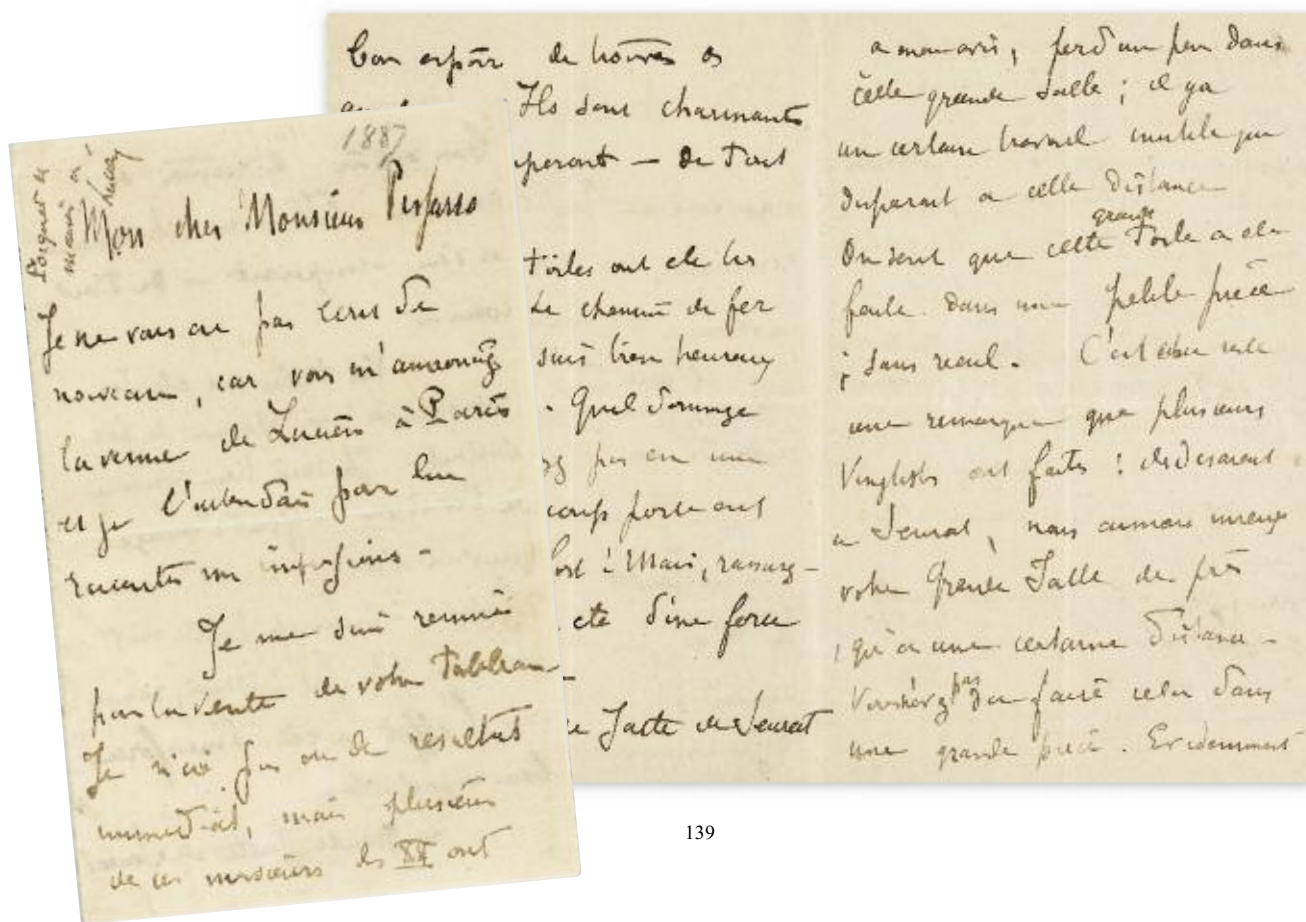 1887
Mon cher Monsieur Pissarro
Je ne vous ai pas écrit de
nouveau, car vous m'annonciez
la venue de Lucien à Paris
et je l'attendais pour lui
raconter mes impressions -
Je me suis remué
pour la vente de votre tableau
Je n'ai pas eu de résultat
immédiat, mais plusieurs
de ces messieurs des XX ont
bon espoir de
Ils sont charmants
- de Tout
Toiles ont été les
Le chemin de fer
suis bien heureux
. Quel dommage
pas eu une
coup porte ont
cte d'une force
e Jatte de Seurat
a mon avis, perd un peu dans
cette grande salle ; il y a
un certain travail inutile qui
disparait a cette distance
On sent que cette grande Toile a été
faite dans une petite pièce
; sans recul. C'est
une remarque que plusieurs
Vingtistes ont faites : ils disaient
a Seurat, nous aimons mieux
votre Grande Jatte de près
, qu'a une certaine distance -
pas fait cela dans
une grande pièce. Evidemment
139